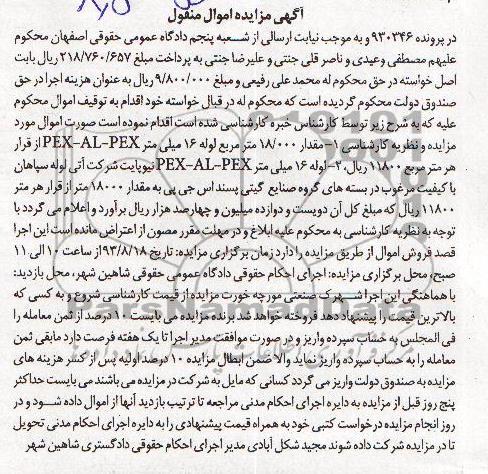 آگهی مزایده اموال منقول
در پرونده ۹۳۰۳۴۶ و به موجب نیابت ارسالی از شعبه پنجم دادگاه عمومی حقوقی اصفهان محکوم
علیهم مصطفی وعیدی و ناصر قلی جنتی و علیرضا جنتی به پرداخت مبلغ ۲۱۸/۷۶۰/۶۵۷ ریال بابت
اصل خواسته در حق محکوم له محمد علی رفیعی و مبلغ ۹/۸۰۰/۰۰۰ ریال به عنوان هزینه اجرا در حق
صندوق دولت محکوم گردیده است که محکوم له در قبال خواسته خود اقدام به توقیف اموال محکوم
علیه که به شرح زیر توسط کارشناس خبره کارشناسی شده است اقدام نموده است صورت اموال مورد
مزایده و نظریه کارشناسی ۱- مقدار ۱۸/۰۰۰ متر مربع لوله ۱۶ میلی متر PEX-AL-PEX از قرار
هر متر مربع ۱۱۸۰۰ ریال، ۲- لوله ۱۶ میلی متر PEX-AL-PEX نیوپایت شرکت آتی لوله سپاهان
با کیفیت مرغوب در بسته های گروه صنایع گیتی پسند اس جی پی به مقدار ۱۸۰۰۰ متر از قرار هر متر
۱۱۸۰۰ ریال که مبلغ کل آن دویست و دوازده میلیون و چهارصد هزار ریال برآورد و اعلام می گردد با
توجه به نظریه کارشناسی به محکوم علیه ابلاغ و در مهلت مقرر مصون از اعتراض مانده است این اجرا
قصد فروش اموال از طریق مزایده را دارد زمان برگزاری مزایده: تاریخ ۹۳/۸/۱۸ از ساعت ۱۰ الی ۱۱
صبح، محل برگزاری مزایده: اجرای احکام حقوقی دادگاه عمومی حقوقی شاهین شهر، محل بازدید:
با هماهنگی این اجرا شهرک صنعتی مورچه خورت مزایده از قیمت کارشناسی شروع و به کسی که
بالاترین قیمت را پیشنهاد دهد فروخته خواهد شد برنده مزایده می بایست ۱۰ درصد از ثمن معامله را
فی المجلس به حساب سپرده واریز و در صورت موافقت مدیر اجرا تا یک هفته فرصت دارد مابقی ثمن
معامله را به حساب سپرده واریز نماید والا ضمن ابطال مزایده ۱۰ درصد اولیه پس از کسر هزینه های
مزایده به صندوق دولت واریز می گردد کسانی که مایل به شرکت در مزایده می باشند می بایست حداکثر
پنج روز قبل از مزایده به دایره اجرای احکام مدنی مراجعه تا ترتیب بازدید آنها از اموال داده شود و در
روز انجام مزایده درخواست کتبی خود به همراه قیمت پیشنهادی را به دایره اجرای احکام مدنی تحویل
تا در مزایده شرکت داده شوند مجید شکل آبادی مدیر اجرای احکام حقوقی دادگستری شاهین شهر